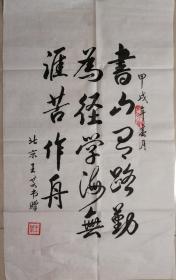 甲戌年春月
書山有路勤
為径学海無
涯苦作舟
北京王芳书赠